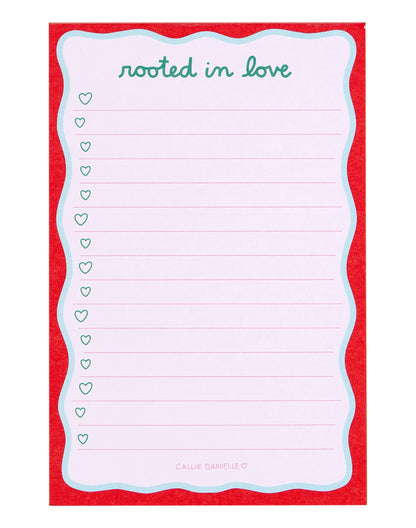 rooted in love
CALLIE DANIELLE♡